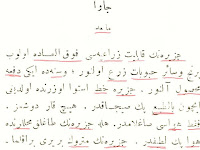 جاوا
مابعد
جزیره‌نك قابلیت زراعیه‌سی فوق العاده اولوب
برنج وسائر حبوبات زرع اولنور و سنه‌ده ایکی دفعه
محصول آلنور . جزیره خط استوا اوزرنده اولدیغی
ایچون بالطبع پك صیجاقدر . هیچ قار دوشمز .
فقط هواسی صاغلامدر . هله جزیره‌نك طاغلق محللرنده
هوا پك لطیفدر . جزیره‌نك متروك بری براقلما-